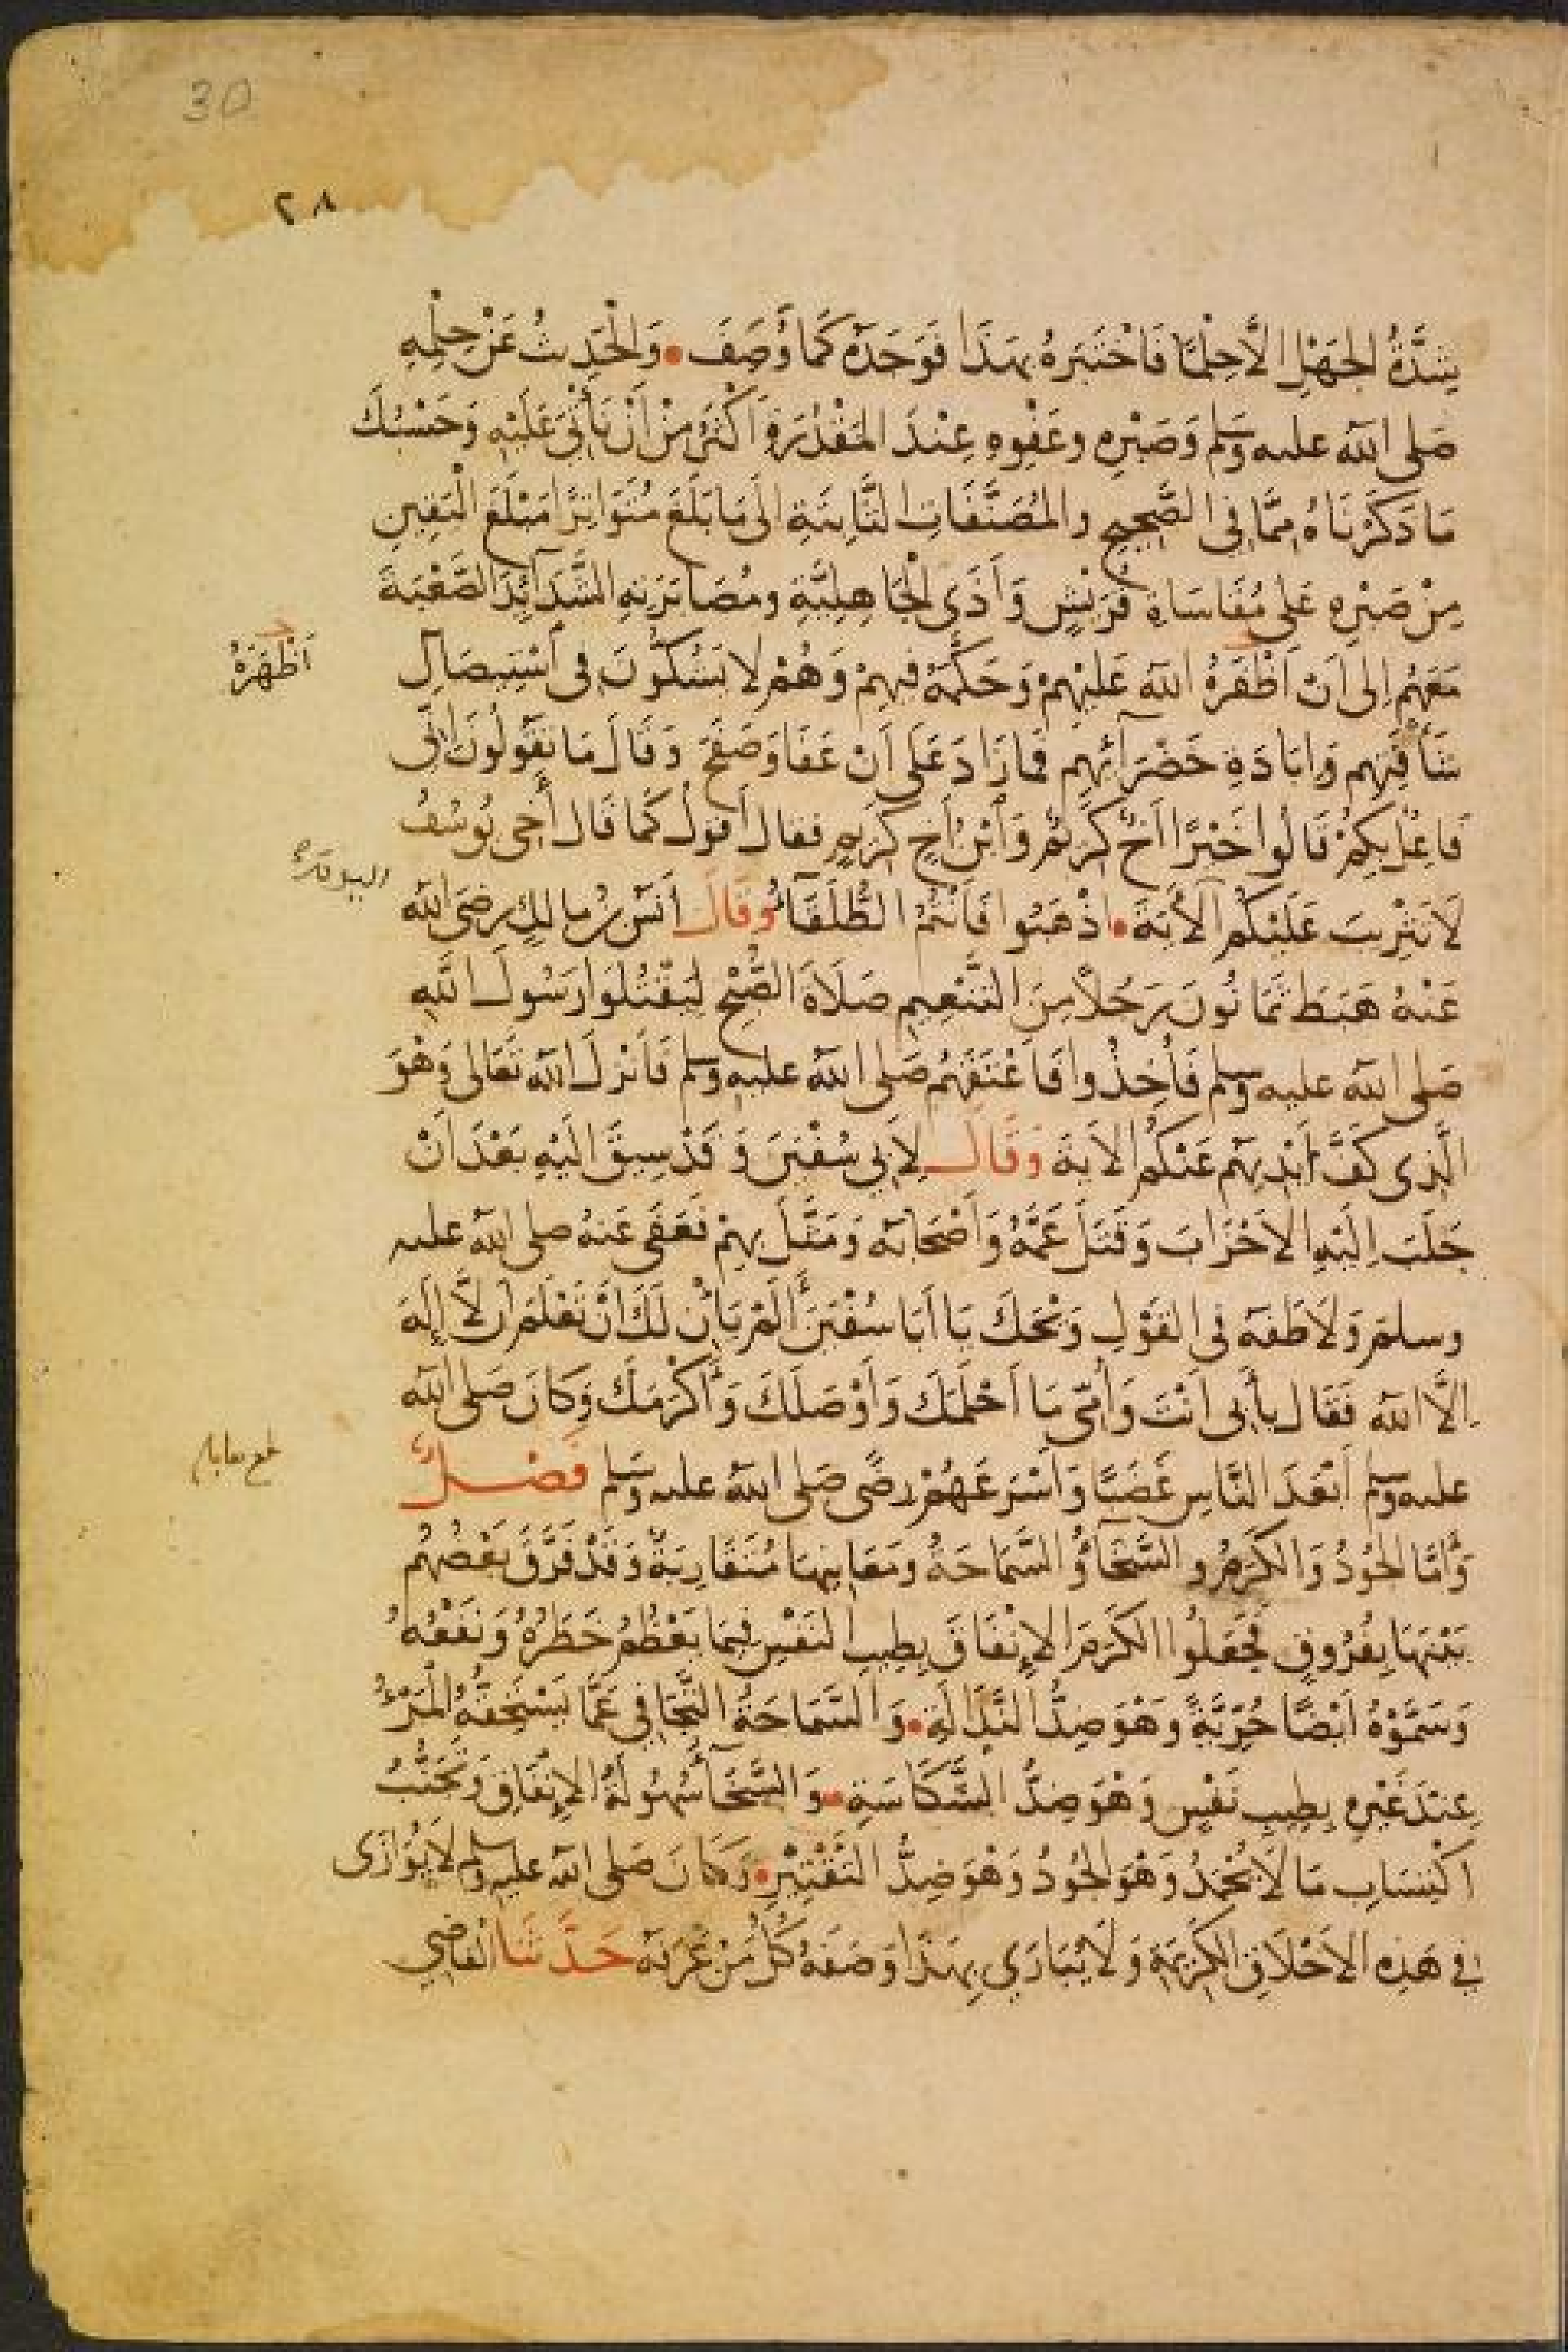 30
٢٨
شِدَّةُ الجَهْلِ الاَّحِلْمًا فَاخْتَبَرَهُ بهَذَا فَوَجَدَهُ كَمَا وُصِفَ • وَالْحَدِيثُ عَنْ حِلْمِهِ
صَلى الله عليه وسَلم وَصَبْرِهِ وعَفْوِهِ عِنْدَ المَقْدُرَةِ اَكْثَرُ مِنْ اَنْ نَأْتِيَ عَلَيْهِ وَحَسْبُكَ
مَا ذَكَرْنَاهُ مِمَّا فِي الصَّحِيحِ والمُصَنَّفَاتِ الثَّابِتَةِ الَى مَا بَلَغَ مُتَوَاتِرًا مَبْلَغَ الْيَقِينِ
مِنْ صَبْرِهِ عَلى مُقَاسَاةِ قُرَيْشٍ وَاَذَى الْجَاهِلِيَّةِ ومُصَابَرَتِهِ الشَّدَآئِدَ الصَّعْبَةَ
مَعَهُم اِلى اَنْ اَظْفَرَهُ الله عَليْهِمْ وَحَكَّمَهُ فِيهِمْ وَهُمْ لا يَشُكُّونَ فِى اسْتِيصَالِ
اَظْهَرَهُ
شَأْفَتِهِم وَابَادَةِ خَضْرَآئِهِم فمَازَادَ عَلَى اَنْ عَفَا وَصَفَحَ وَقَالَ مَا تَقُولُونَ اِنِّى
فَاعِلٌ بِكِمْ قَالُوا خَيْرًا اَخٌ كَرِيْمٌ وَابْنُ اَخٍ كَرِيمٍ فقال اَقولُ كَمَا قَال أَخِى يُوسُفُ
لَا تَثْرِيبَ عَلَيْكُمُ الآيَةَ • اذْهَبُوا فَاَنْتُمُ الطُّلَقَآءُ وَقَالَ اَنَسُ بْنُ مالِكٍ رضَى الله
عَنْهُ هَبَطَ ثَمَانُونَ رَجُلاً مِنَ التَّنْعِيمِ صَلَاةَ الصُّبْحِ لِيَقْتُلُوا رَسُولَ اللهِ
صَلى الله عليه وسلم فَأُخِذُوا فَاعْتَقَهُم صَلى الله عليه وسلم فَاَنْزَلَ الله تَعَالى وَهْوَ
الَّذِى كَفَّ اَيْدِيَهُم عَنْكُمُ الآيةَ وَقَالَ لاَبِى سُفْيَنَ وَقَدْ سِيقَ الَيْهِ بَعْدَ اَنْ
جَلَبَ اِلَيْهِ الاَحْزَابَ وَقَتَلَ عَمَّهُ وَاَصْحَابَه وَمَثَّلَ بِهِمْ فَعَفَى عَنهُ صلى الله عليه
وسلم وَلَاطَفَه فى القَوْلِ وَيْحَكَ يَا اَبَا سُفْيَنَ أَلَمْ يَاْنِ لَكَ اَنْ تَعْلَمَ ان لاَّ اِلَهَ
اِلَّا الله فَقَال بأَبِى اَنْتَ وَأُمِّى مَا اَحْلَمَكَ وَاَوْصَلَكَ وَاَكْرَمَكَ وَكَانَ صَلى الله
عليه وسَلم اَبْعَدَ النَّاسِ غَضَبًا وَاَسْرَعَهُمْ رِضًى صَلى الله عليه وسَلم فَصْلٌ
وَأَمَّا الجُودُ وَالكَرَمُ والسَّخَآءُ والسَّمَاحَةُ ومَعَانِيهَا مُتَقَارِبَةٌ وَقَدْ فَرَّقَ بَعْضُهُم
بَيْنَهَا بِفُرُوقٍ فَجَعَلُوا الكَرَمَ الاِنْفَاقَ بِطِيبِ النَفْسِ فِيمَا يَعْظُمُ خَطَرُهُ وَنَفْعُهُ
وَسَمَّوْهُ اَيْضًا حُرِّيَّةً وَهْوَ ضِدُّ النَّذَالَةِ • وَالسَّمَاحَةُ التَّجَافِى عَمَّا يَسْتَحِقُّهُ الْمَرْءُ
عِندَ غَيْرِهِ بِطِيبِ نَفْسٍ وَهْوَ ضِدُّ الشَّكَاسَةِ • وَالسَّخَآءُ سُهُولَةُ الاِنْفَاقِ وَتَجَنُّبُ
اكْتِسَابِ مَا لَا يُحْمَدُ وَهْوَ الجُودُ وَهْوَ ضِدُّ التَقْتِيْرِ • وَكانَ صَلى الله عليه وسلم لَا يُوَازَى
فى هَذِهِ الاَخْلَاقِ الكَرِيمَةِ وَلَا يُبَارَى بِهَذَا وَصَفَهُ كُلُّ مَنْ عَرَفَهُ حَدَّثَنَا القَاضِى